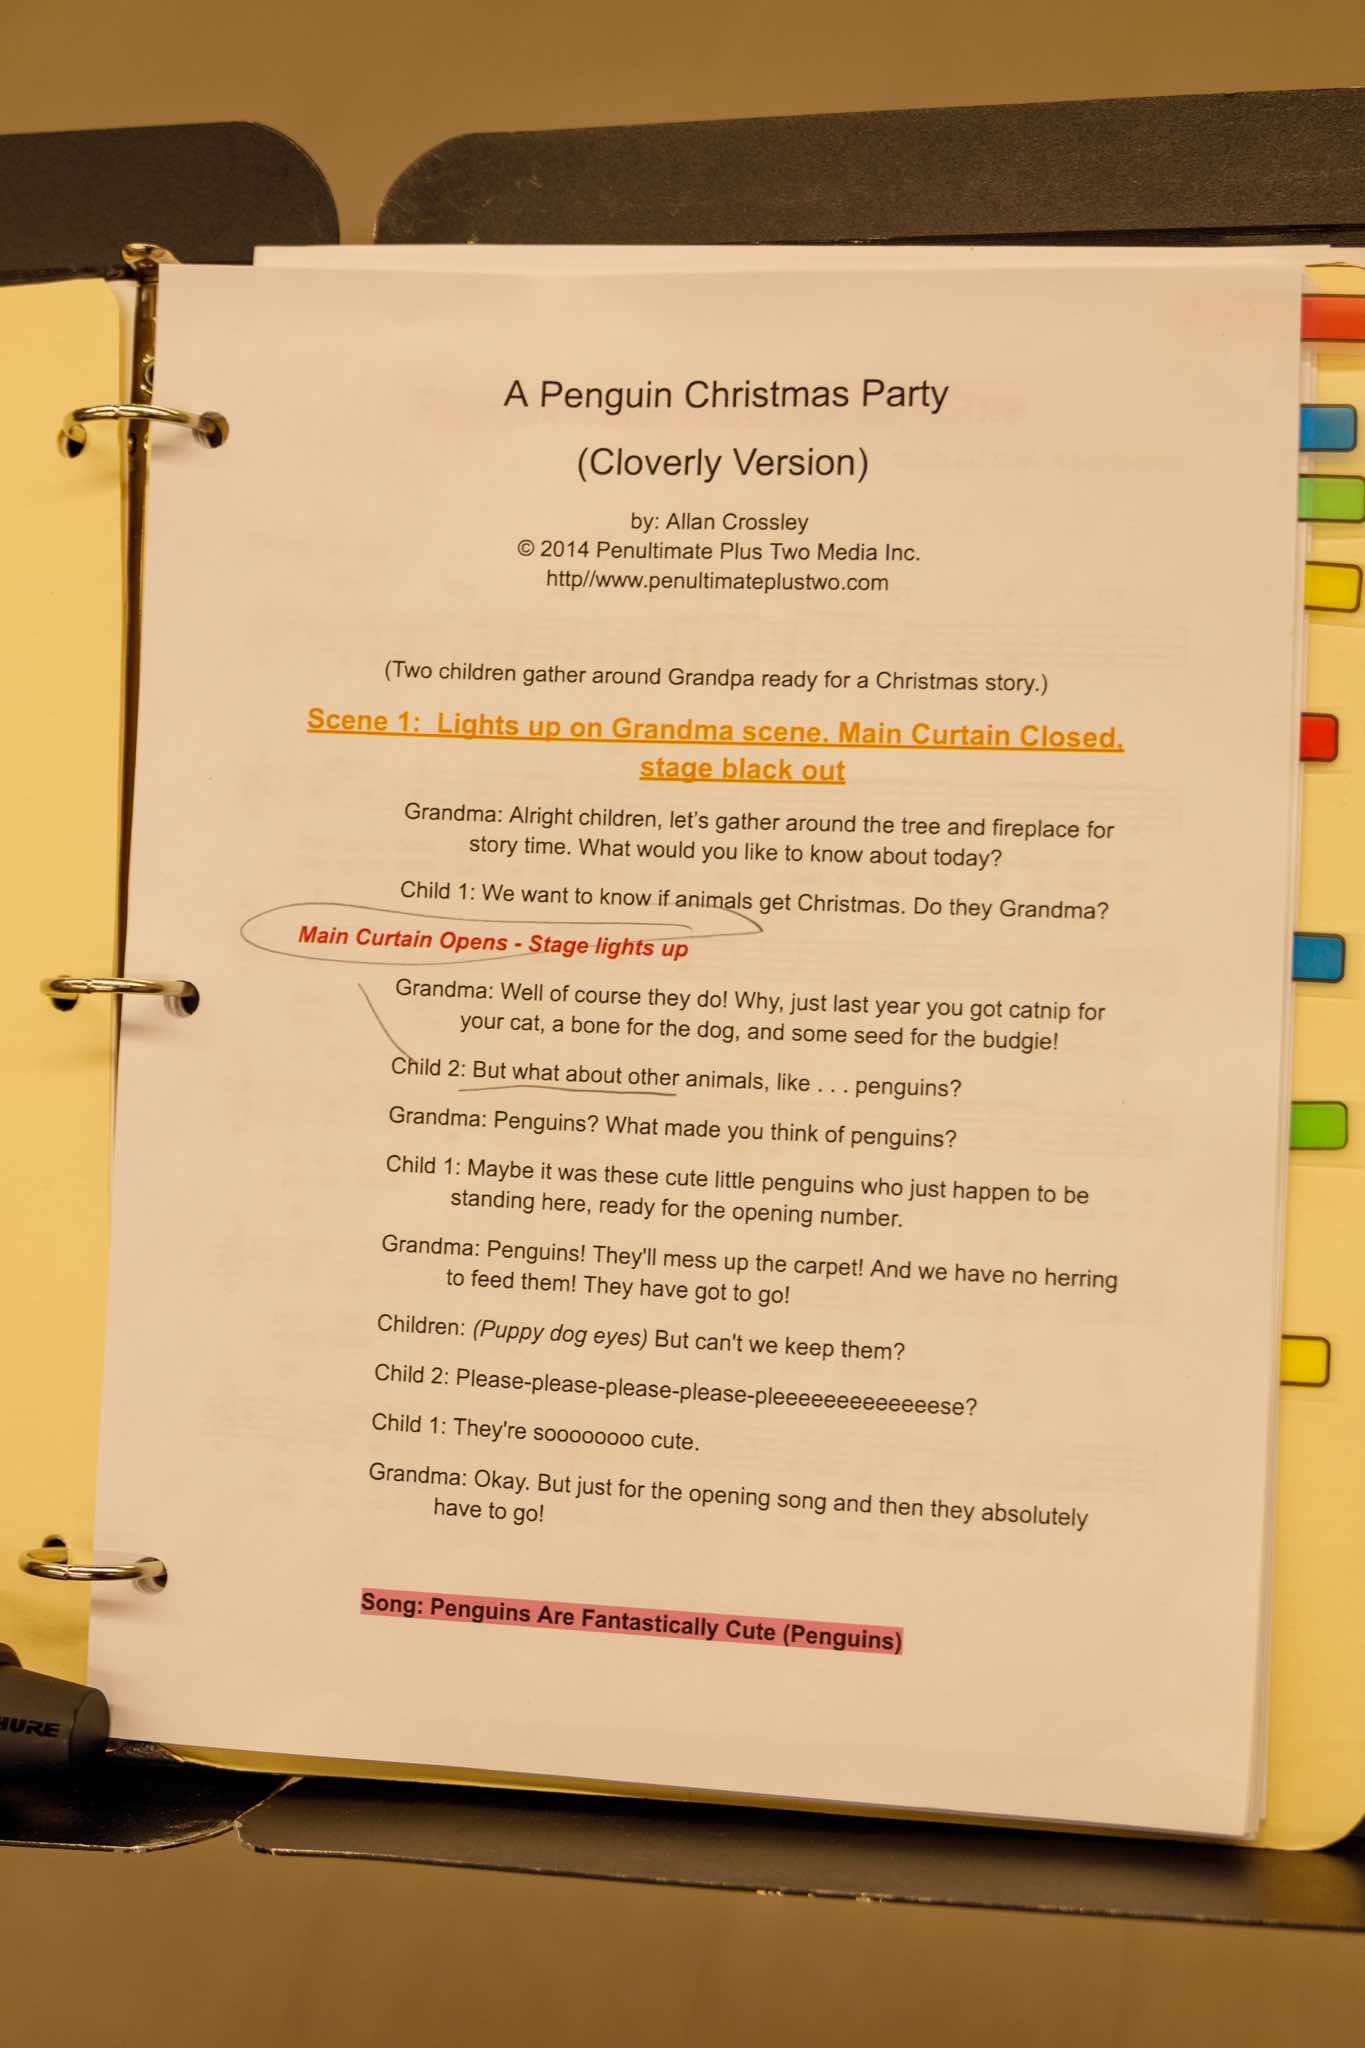 A Penguin Christmas Party
(Cloverly Version)
by: Allan Crossley
© 2014 Penultimate Plus Two Media Inc.
http//www.penultimateplustwo.com
(Two children gather around Grandpa ready for a Christmas story.)
Scene 1: Lights up on Grandma scene. Main Curtain Closed,
stage black out
Grandma: Alright children, let's gather around the tree and fireplace for
story time. What would you like to know about today?
Child 1: We want to know if animals get Christmas. Do they Grandma?
Main Curtain Opens - Stage lights up
Grandma: Well of course they do! Why, just last year you got catnip for
your cat, a bone for the dog, and some seed for the budgie!
Child 2: But what about other animals, like . . . penguins?
Grandma: Penguins? What made you think of penguins?
Child 1: Maybe it was these cute little penguins who just happen to be
standing here, ready for the opening number.
Grandma: Penguins! They'll mess up the carpet! And we have no herring
to feed them! They have got to go!
Children: (Puppy dog eyes) But can't we keep them?
Child 2: Please-please-please-please-pleeeeeeeeeeeeeese?
Child 1: They're soooooooo cute.
Grandma: Okay. But just for the opening song and then they absolutely
have to go!
Song: Penguins Are Fantastically Cute (Penguins)
HURE